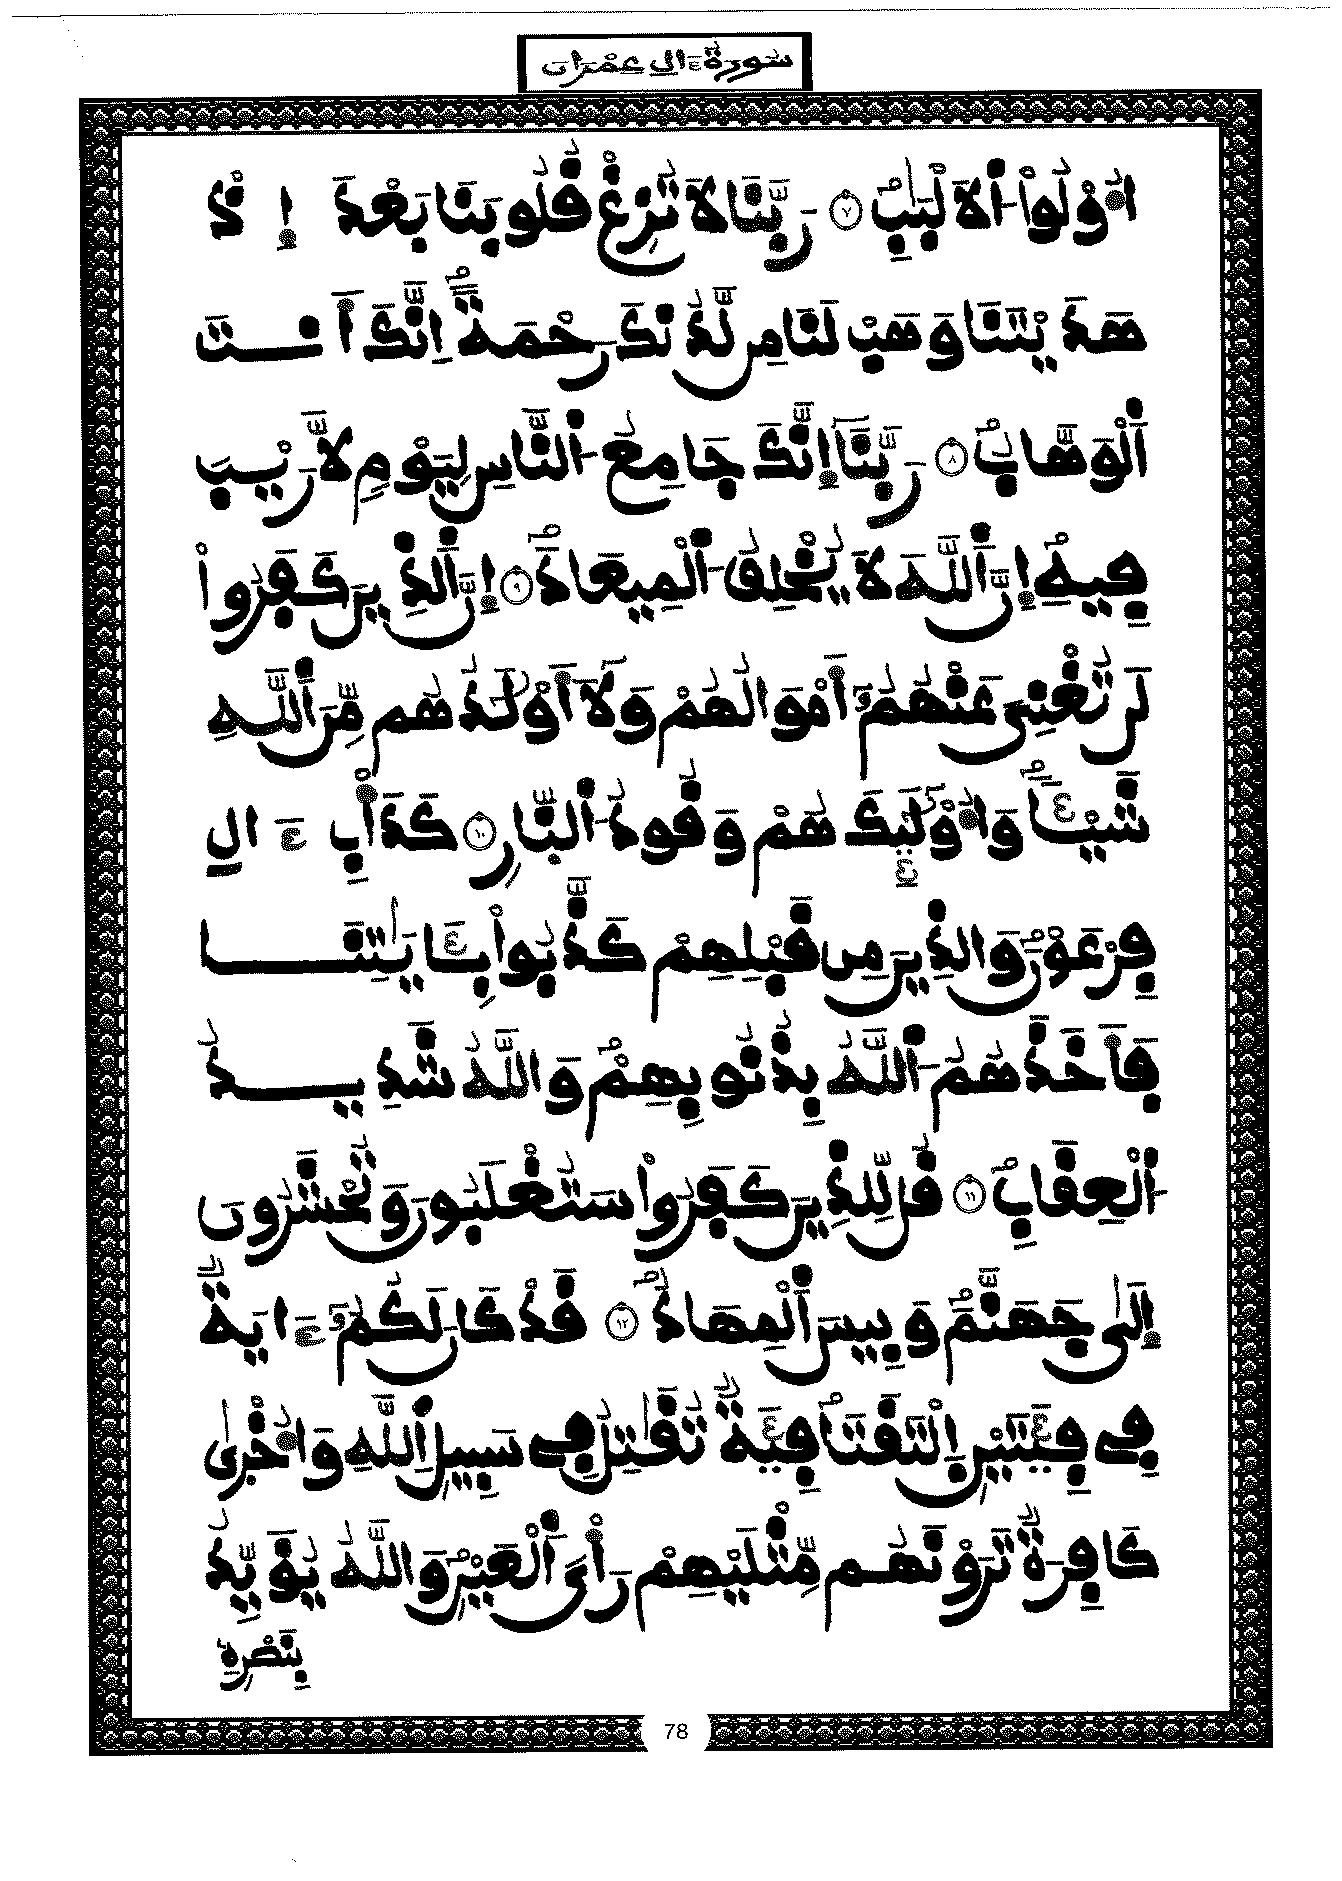 سُورَةُ ءَالِ عِمْرَان
أُوْلُواْ اُلَالْبَٰبِ ٧ رَبَّنَا لَا تُزِغْ قُلُوبَنَا بَعْدَ إِذْ
هَدَيْتَنَا وَهَبْ لَنَا مِن لَّدُنكَ رَحْمَةً اِنَّكَ أَنتَ
اَلْوَهَّابُ ٨ رَبَّنَا إِنَّكَ جَامِعُ اُلنَّاسِ لِيَوْمٍ لَّا رَيْبَ
فِيهِ إِنَّ اَللَّهَ لَا يُخْلِفُ اُلْمِيعَادَ ٩ إِنَّ اَلذِينَ كَفَرُواْ
لَن تُغْنِيَ عَنْهُمُ أَمْوَالُهُمْ وَلَا أَوْلَٰدُهُم مِّنَ اَللَّهِ
شَيْـًٔا وَأُوْلَٰئِكَ هُمْ وَقُودُ اُلنّارِ ١٠ كَدَأْبِ ءَالِ
فِرْعَوْنَ وَالذِينَ مِن قَبْلِهِمْ كَذَّبُواْ بِـَٔايَٰتِنَا
فَأَخَذَهُمُ اُللَّهُ بِذُنُوبِهِمْ وَاللَّهُ شَدِيدُ
اُلْعِقَابِ ١١ قُل لِّلذِينَ كَفَرُواْ سَتُغْلَبُونَ وَتُحْشَرُونَ
إِلَىٰ جَهَنَّمَ وَبِيسَ اَلْمِهَادُ ١٢ قَدْ كَانَ لَكُمُ ءَايَةٌ
فِي فِئَتَيْنِ اِلْتَقَتَا فِئَةٌ تُقَٰتِلُ فِي سَبِيلِ اِللَّهِ وَأُخْرَىٰ
كَافِرَةٌ تَرَوْنَهُم مِّثْلَيْهِمْ رَأْيَ اَلْعَيْنِ وَاللَّهُ يُؤَيِّدُ
بِنَصْرِهِ
78